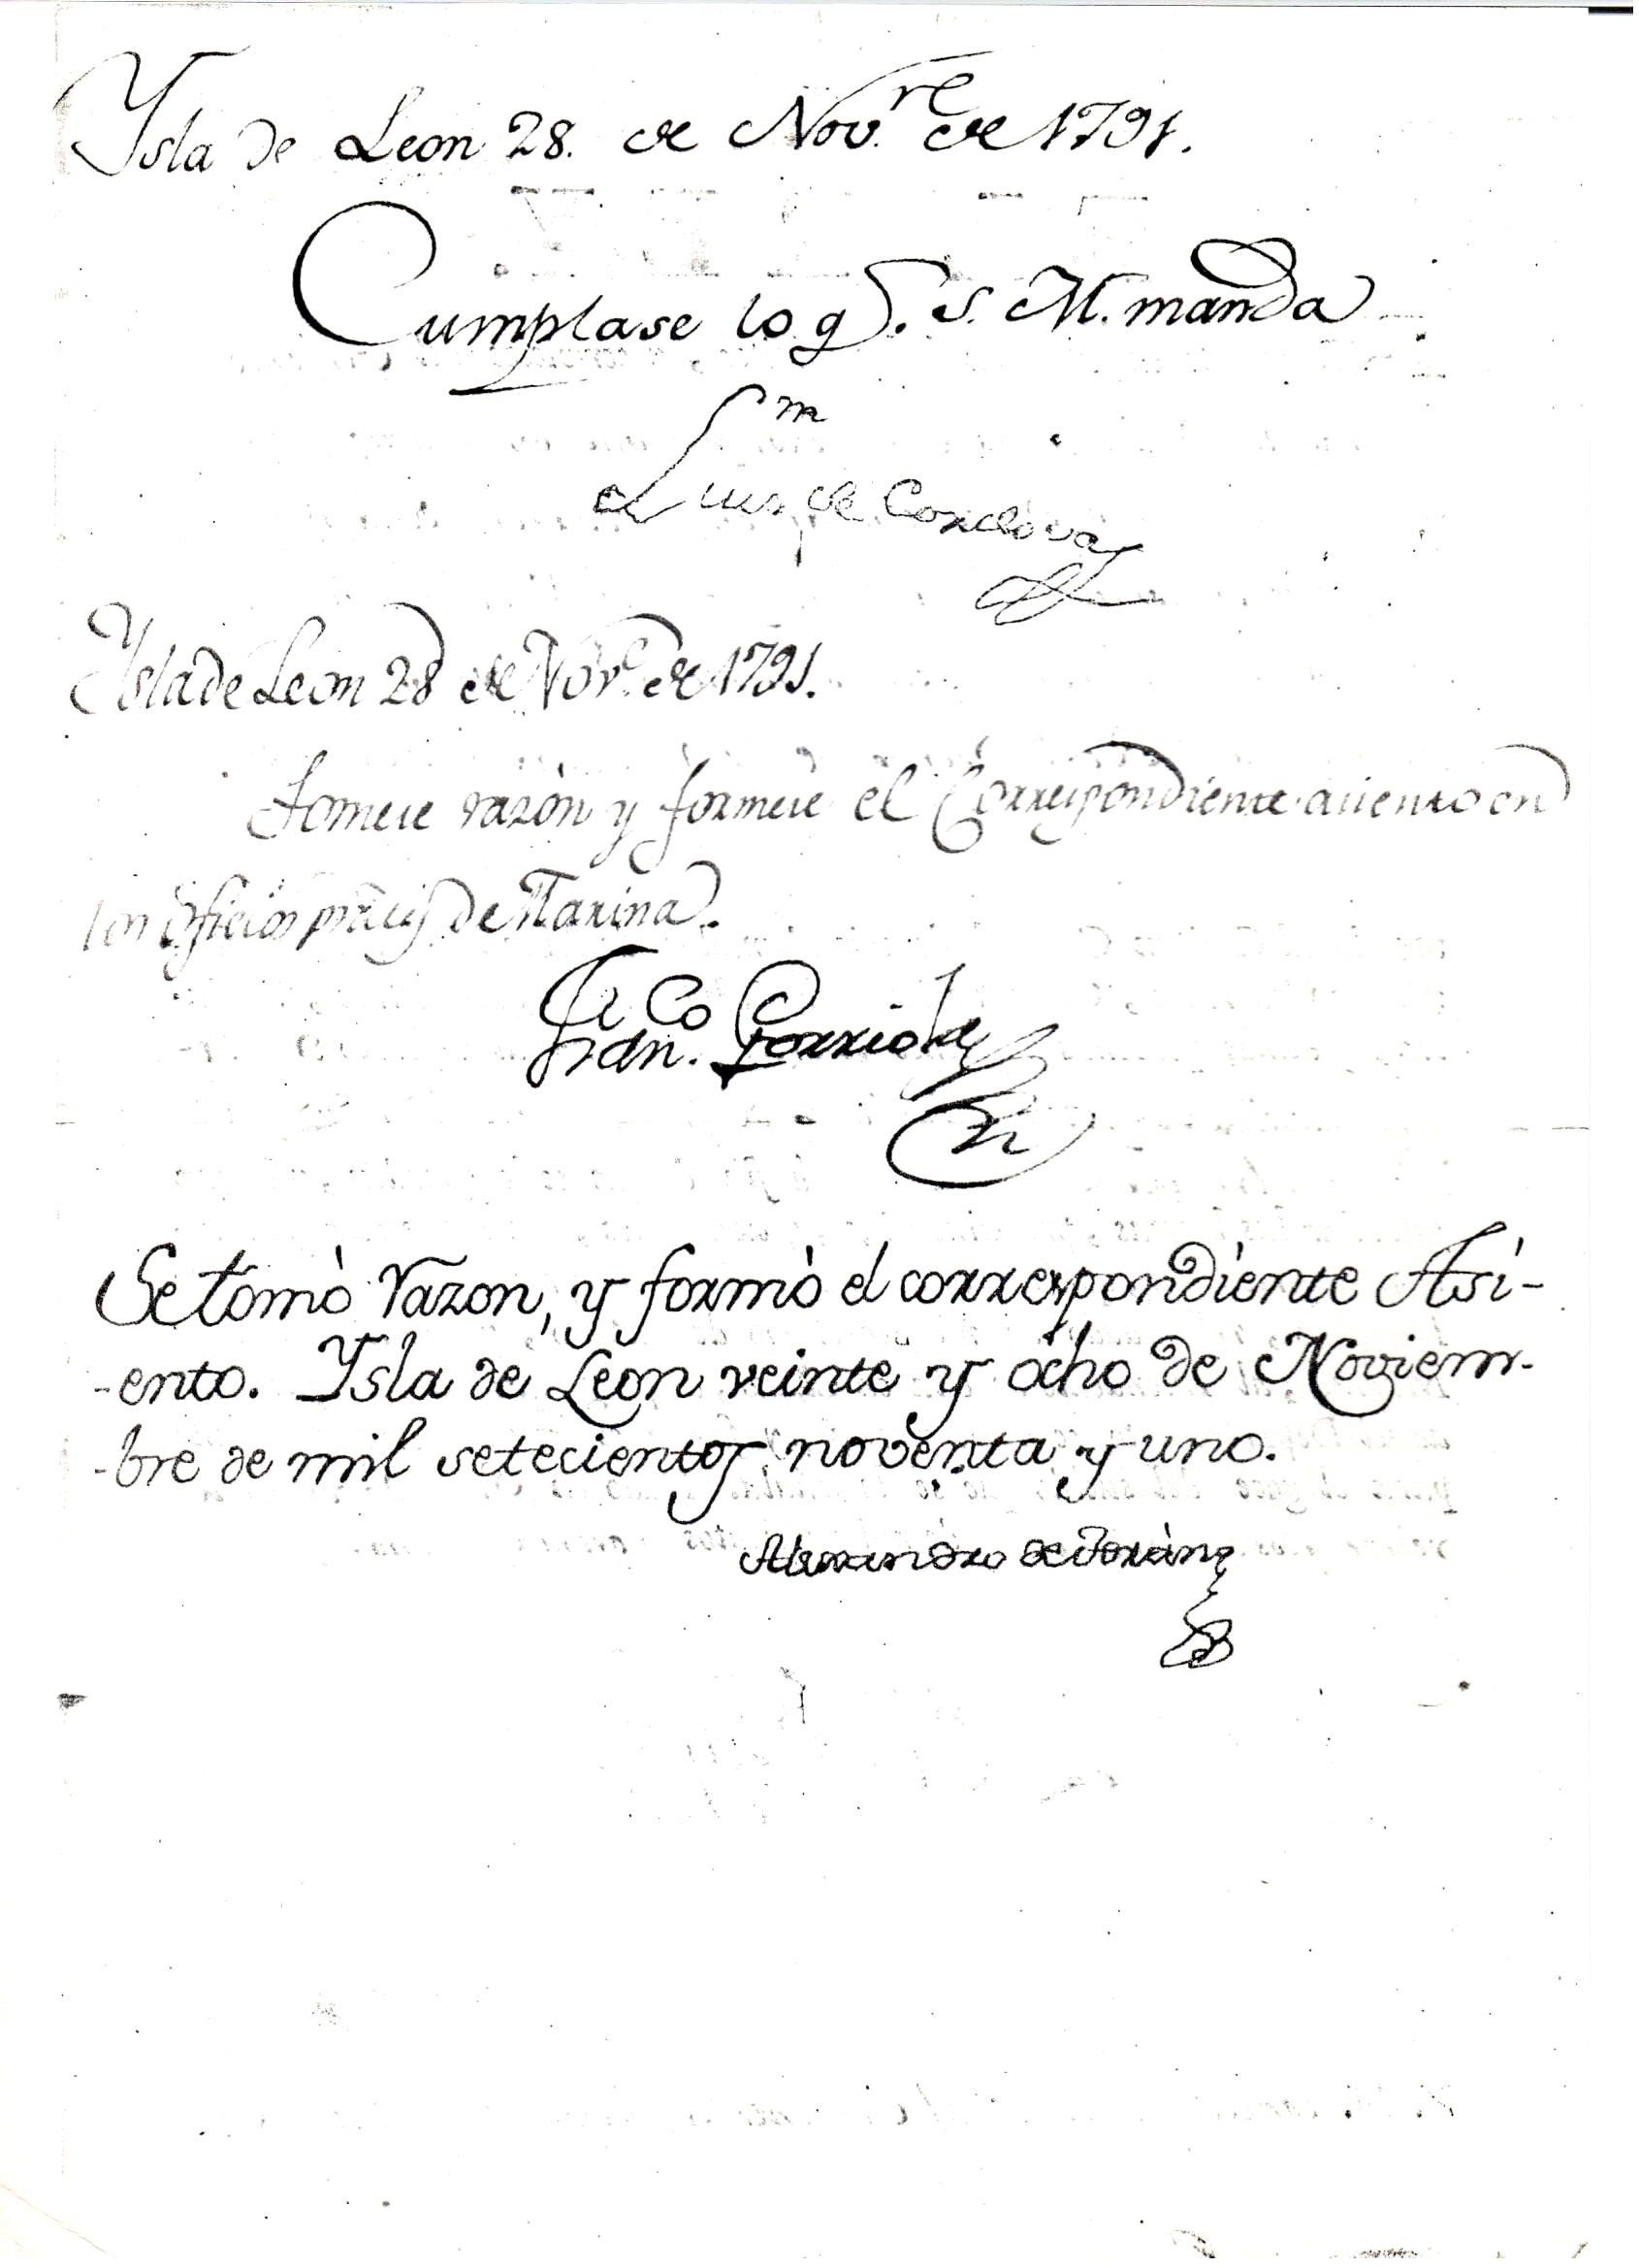 Ysla de Leon 28. de Nov.re de 1791.
Cumplase lo q.e S. M. manda
Luis de Cordova
Ysla de Leon 28 de Nov.e de 1791.
Tomese razòn y formese el Correspondiente asiento en
los Oficios prāles de Marina.
Fran.co Garrido
Se tomò Razon, y formò el correspondiente Asi-
-ento. Ysla de Leon veinte y ocho de Noviem-
-bre de mil setecientos noventa y uno.
Alexandro de